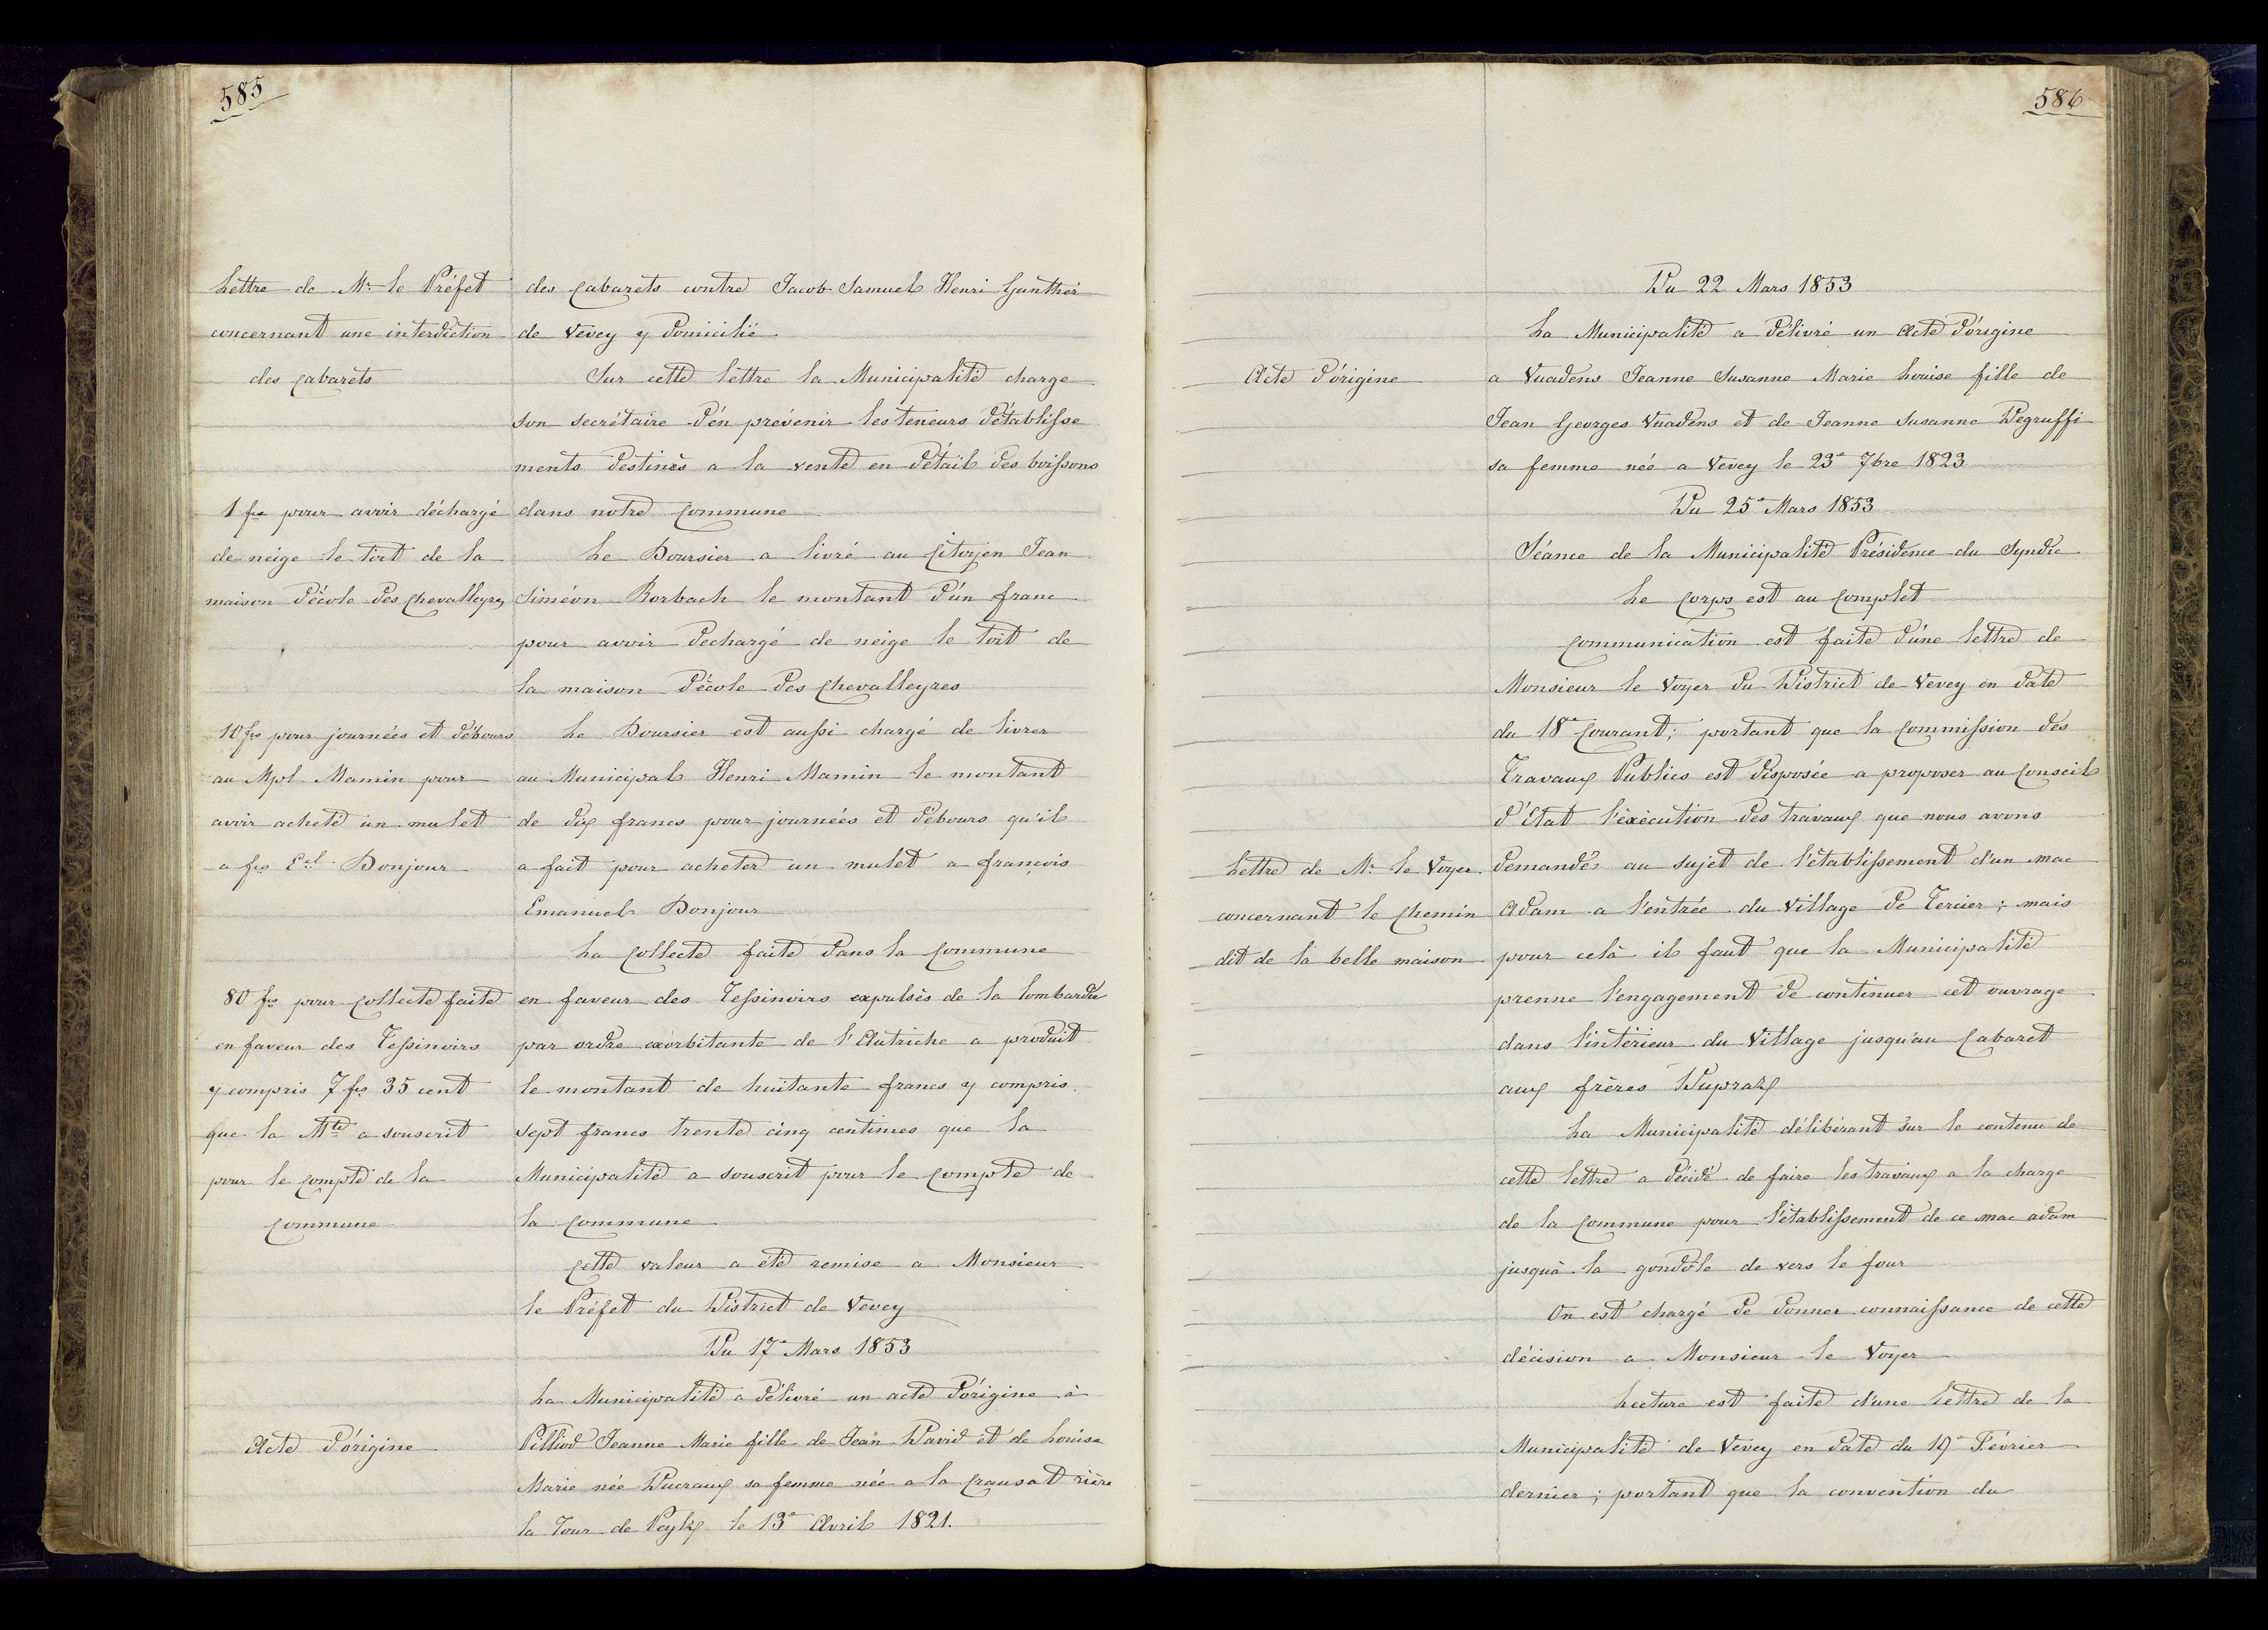 585
Lettre de Mr. le Préfet
concernant une interdiction
des Cabarets
1 fr pour avoir déchargé
de neige le toit de la
maison d'école des Chevalleyres
10 frs pour journées et débours
au Mpl Mamin pour
avoir acheté un mulet
a frs Eel Bonjour
80 frs pour Collecte faite
en faveur des Tessinois
y compris 7 frs 35 cent
que la Mté a souscrit
pour le Compte de la
Commune
Acte d'origine
des Cabarets contre Jacob Samuel Henri Gunther
de Vevey y domicilié
Sur cette lettre la Municipalité charge
son secrétaire d'en prévenir les teneurs d'établisse
ments destinés a la vente en détail des boissons
dans notre Commune
Le Boursier a livré au Citoyen Jean
Siméon Rorbach le montant d'un franc
pour avoir dechargé de neige le toit de
la maison d'école des Chevalleyres
Le Boursier est aussi chargé de livrer
au Municipal Henri Mamin le montant
de dix francs pour journées et débours qu'il
a fait pour acheter un mulet a françois
Emanuel Bonjour
La Collecte faite dans la Commune
en faveur des Tessinois expulsés de la lombardie
par ordre exorbitante de l'Autriche a produit
le montant de huitante francs y compris
sept francs trente cinq centimes que la
Municipalité a souscrit pour le Compte de
la Commune
Cette valeur a été remise a Monsieur
le Préfet du District de Vevey
Du 17e Mars 1853
La Municipalité a délivré un acte d'origine à
Pilliod Jeanne Marie fille de Jean David et de Louise
Marie née Ducraux sa femme née a la Crausat rière
la Tour de Peylz le 13e Avril 1821.
586
Du 22 Mars 1853
La Municipalité a délivré un Acte d'origine
Acte d'origine
a Vuadens Jeanne Susanne Marie Louise fille de
Jean Georges Vuadens et de Jeanne Susanne Degruffi
sa femme née a Vevey le 23e 7bre 1823
Du 25e Mars 1853
Séance de la Municipalité Présidence du Syndic
Le Corps est au Complet
Communication est faite d'une lettre de
Monsieur le Voyer du District de Vevey en date
du 18e Courant; portant que la Commission des
Travaux Publics est disposée a proposer au Conseil
d'Etat l'éxécution des travaux que nous avons
Lettre de Mr. le Voyer
concernant le Chemin
dit de la belle maison
demandés au sujet de l'établissement d'un mac
Adam a l'entrée du Village de Tercier; mais
pour celà il faut que la Municipalité
prenne l'engagement de continuer cet ouvrage
dans l'intérieur du Village jusqu'au Cabaret
aux frères Dupraz
La Municipalité délibérant sur le contenu de
cette lettre a décidé de faire les travaux a la charge
de la Commune pour l'établissement de ce mac adam
jusquà la gondôle de vers le four
On est chargé de donner connaissance de cette
décision a Monsieur le Voyer
Lecture est faite d'une lettre de la
Municipalité de Vevey en date du 19e Février
dernier; portant que la convention du